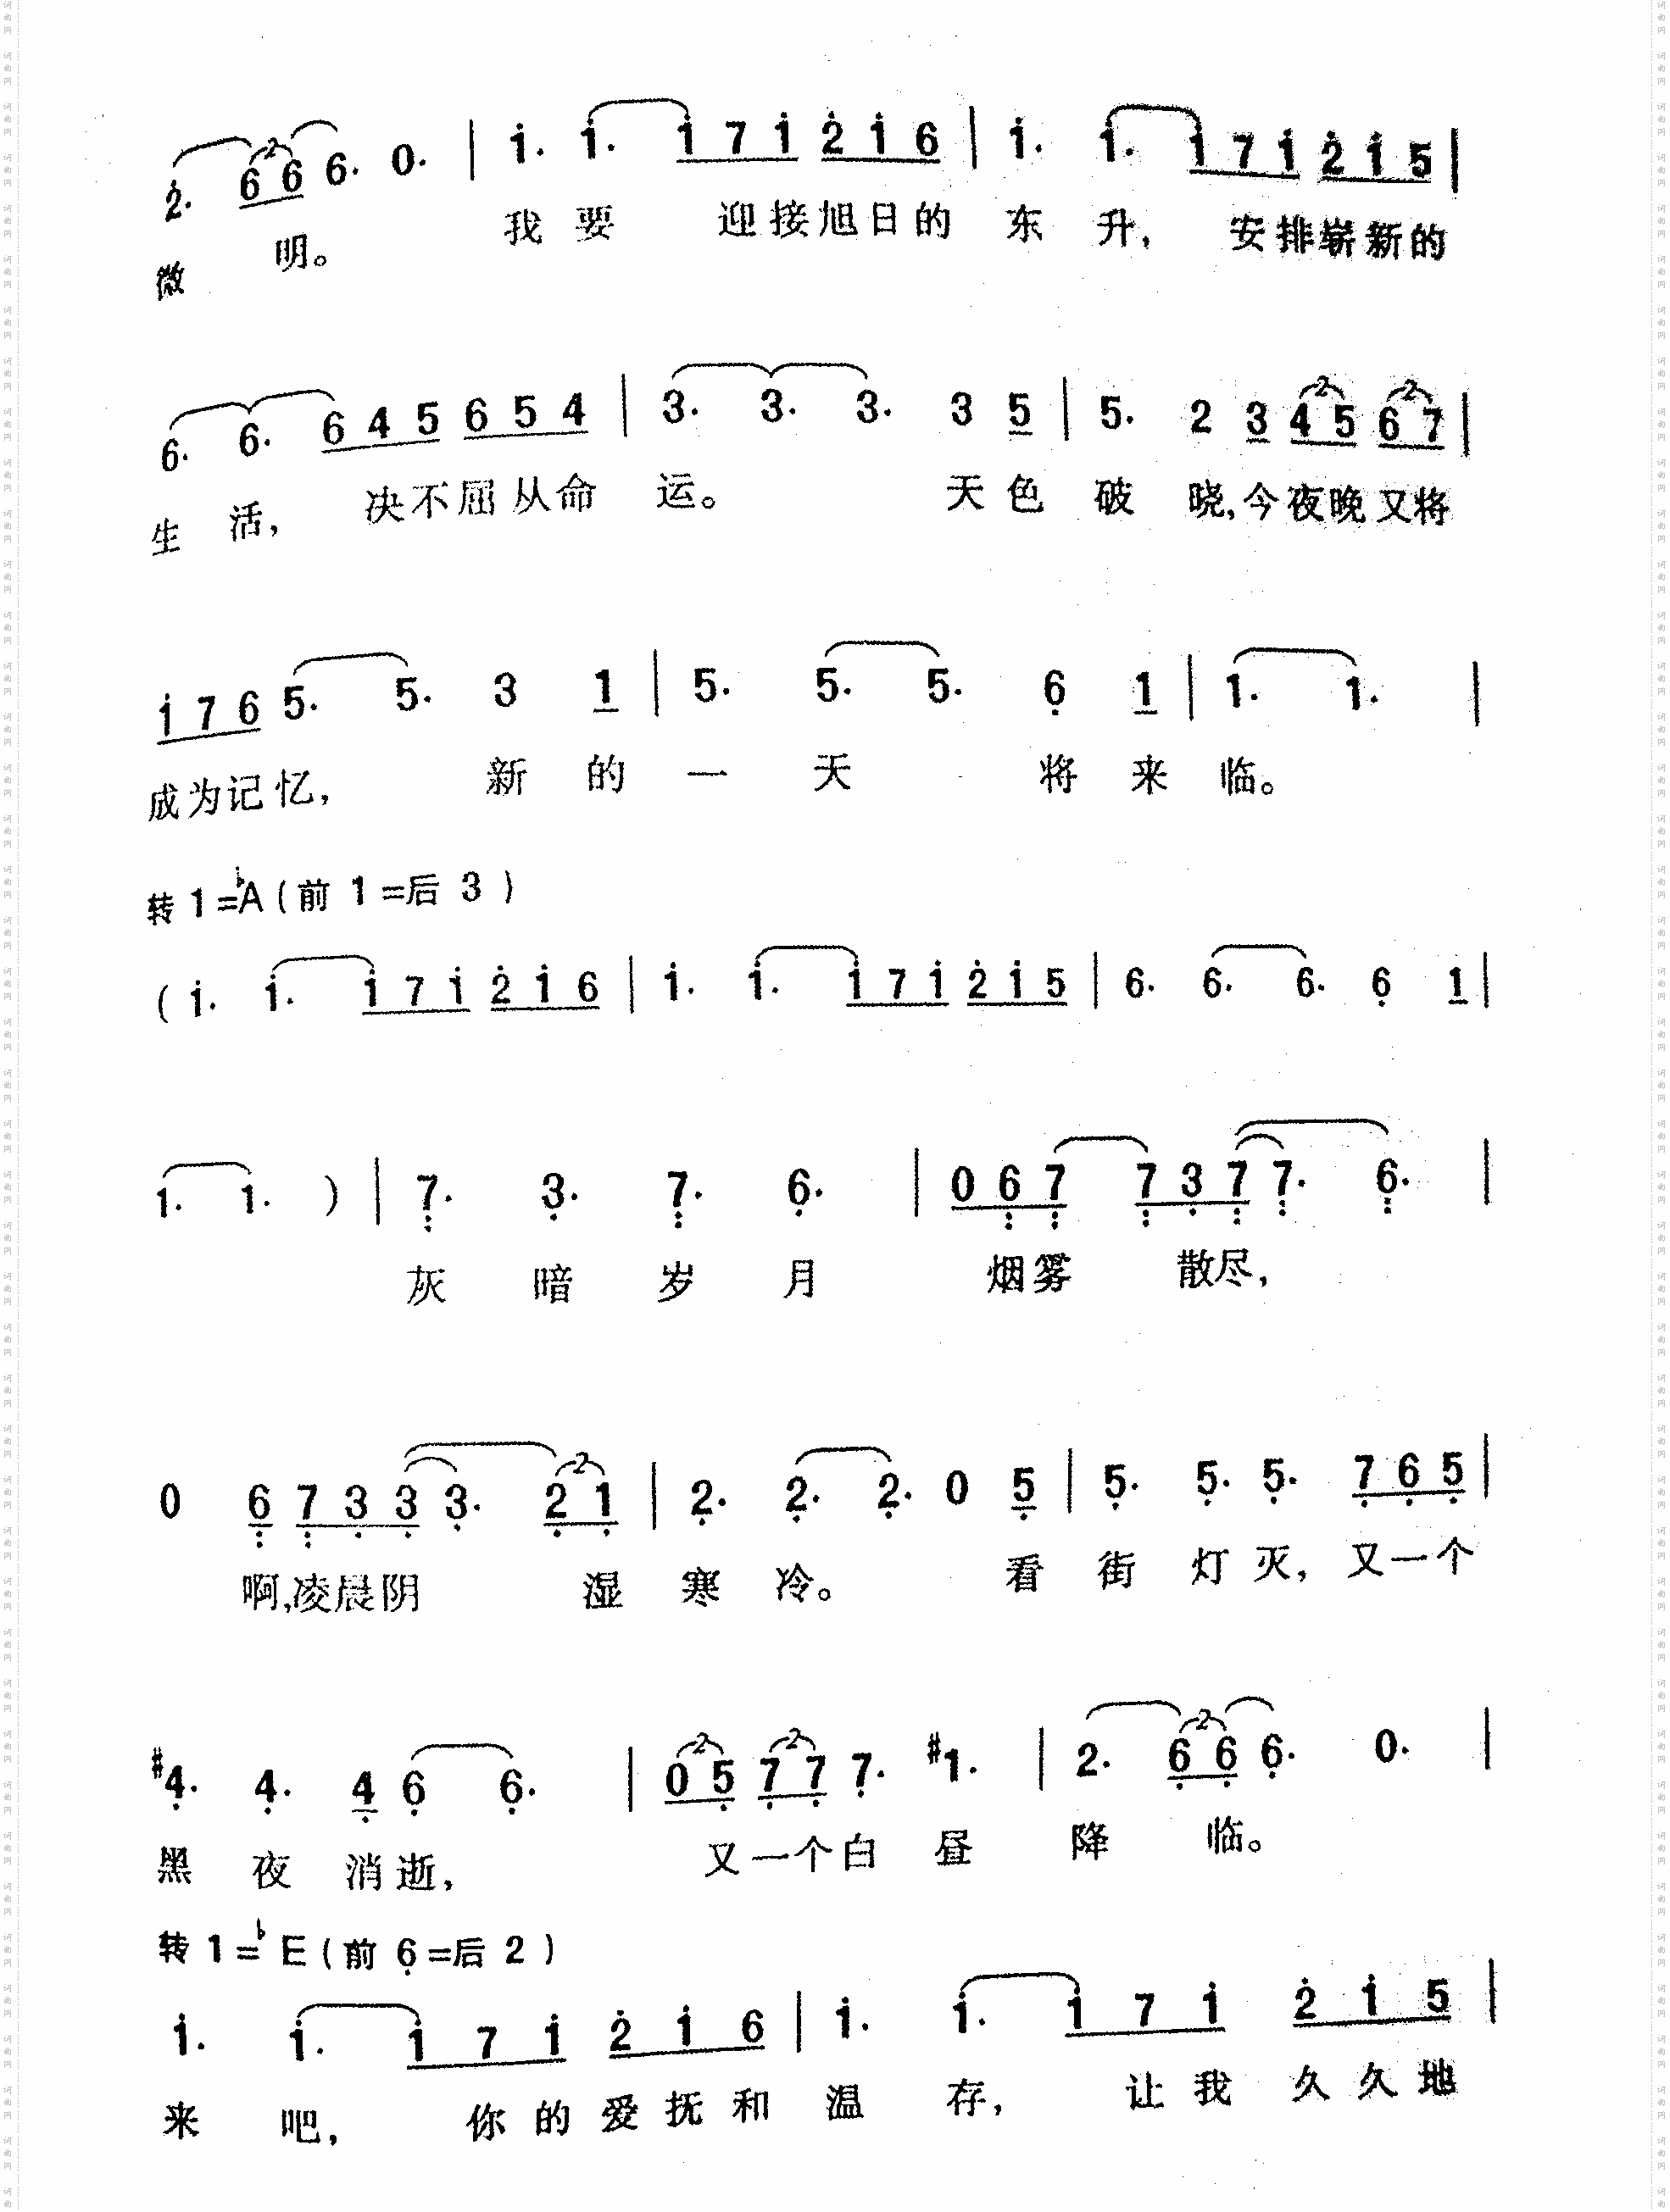 2̇. 6 6 6. 0. | 1̇. 1̇. 1̇ 7 1̇ 2̇ 1̇ 6 | 1̇. 1̇. 1̇ 7 1̇ 2̇ 1̇ 5 |
微 明。 我 要 迎 接 旭 日 的 东 升， 安 排 崭 新 的
6. 6. 6 4 5 6 5 4 | 3. 3. 3. 3 5 | 5. 2 3 4 5 6 7 |
生 活， 决 不 屈 从 命 运。 天 色 破 晓，今 夜 晚 又 将
1̇ 7 6 5. 5. 3 1 | 5. 5. 5. 6̣ 1 | 1. 1. |
成 为 记 忆， 新 的 一 天 将 来 临。
转 1=♭A（前 1=后 3）
（1̇. 1̇. 1̇ 7 1̇ 2̇ 1̇ 6 | 1̇. 1̇. 1̇ 7 1̇ 2̇ 1̇ 5 | 6. 6. 6. 6̣ 1 |
1. 1. ）| 7. 3. 7. 6. | 0 6 7 7 3 7 7. 6. |
灰 暗 岁 月 烟 雾 散 尽，
0 6 7 3 3 3. 2 1 | 2. 2. 2. 0 5 | 5. 5. 5. 7 6 5 |
啊，凌 晨 阴 湿 寒 冷。 看 街 灯 灭， 又 一 个
#4. 4. 4 6 6. | 0 5 7 7 7. #1. | 2. 6 6 6. 0. |
黑 夜 消 逝， 又 一 个 白 昼 降 临。
转 1=♭E（前 6̣=后 2）
1̇. 1̇. 1̇ 7 1̇ 2̇ 1̇ 6 | 1̇. 1̇. 1̇ 7 1̇ 2̇ 1̇ 5 |
来 吧， 你 的 爱 抚 和 温 存， 让 我 久 久 地